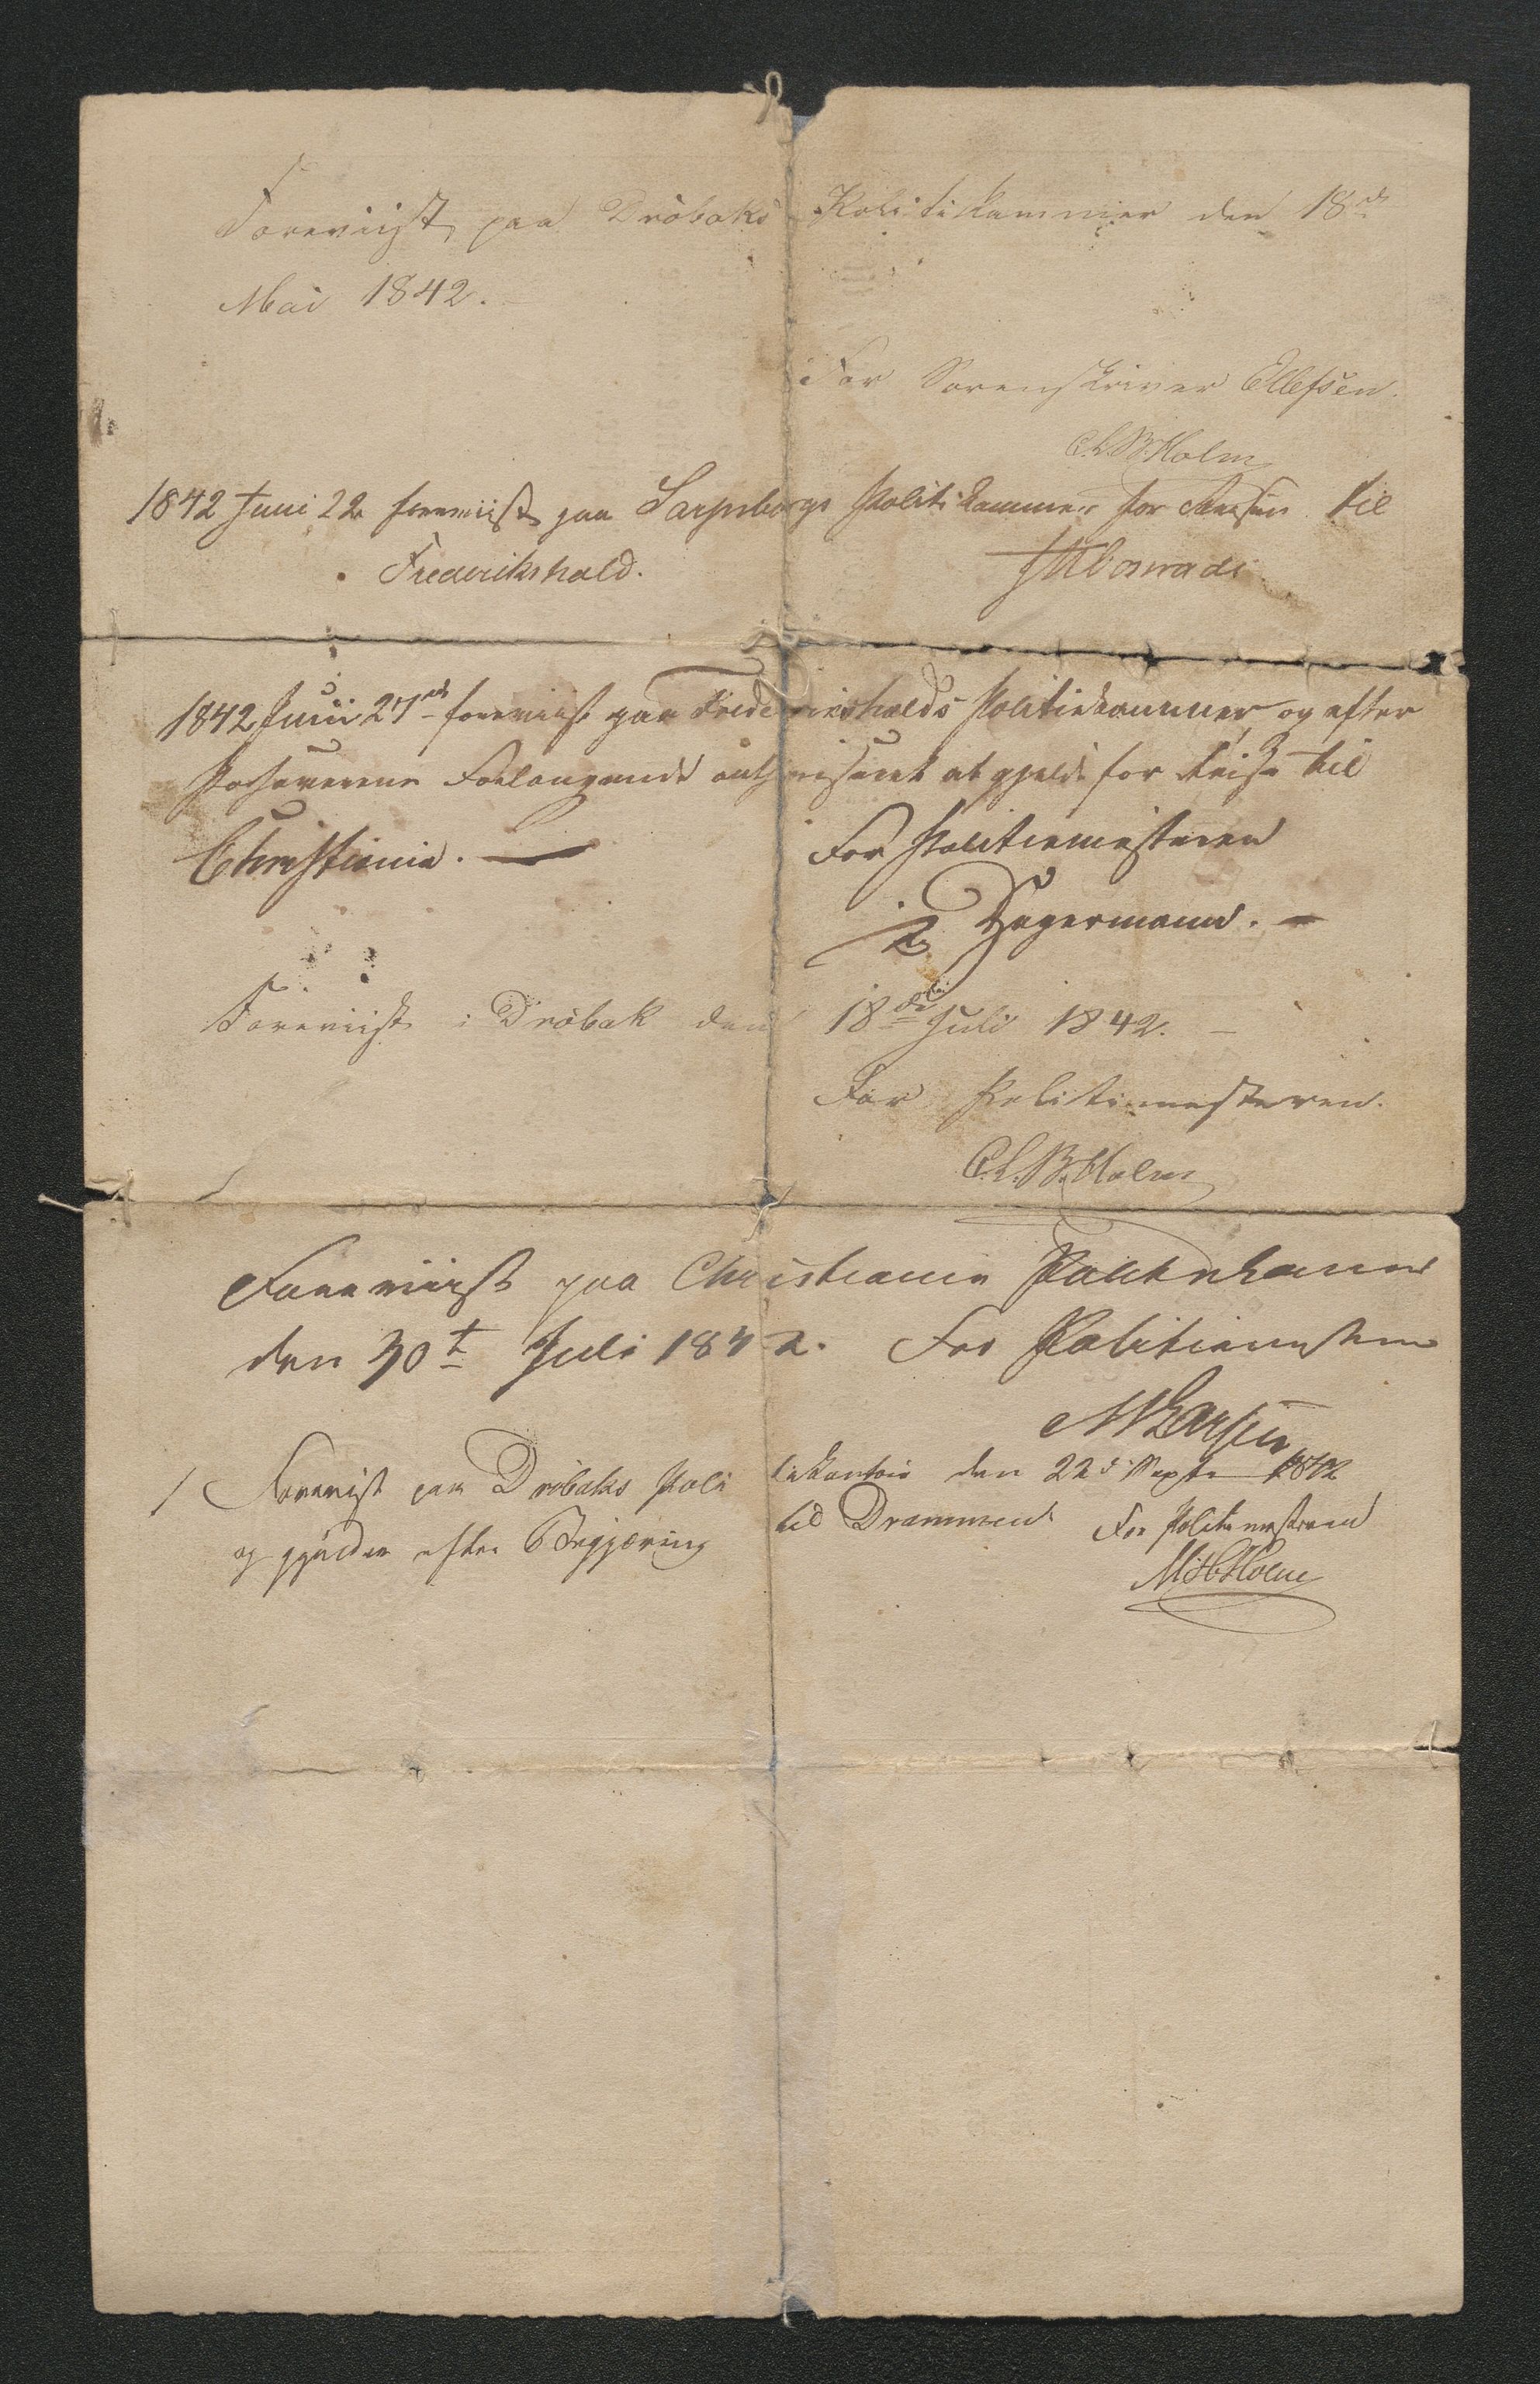 Foreviist paa Dröbaks Politikammer den 18de
Mai 1842.
For Sorenskriver Ellefsen.
C.L.B. Holm
1842 Juni 22 foreviist paa Sarpsborgs Politikammer for Reisen til
Frederikshald.
1842 Juni 27de foreviist paa Frederikshalds Politiekammer og efter
Passøverens Forlangende authoriseret at gjelde for Reise til
Christiania.
For Politiemesteren
Hagermann.
Foreviist i Dröbak den 18de Juli 1842.
For Politimesteren.
C.L.B. Holm
Foreviist paa Christiania Politikammer
den 30t Juli 1842. For Politiemesteren
Foreviist paa Dröbaks Politikontoir den 22d Septr 1842
og gjælder efter Begjæring til Drammen For Politimesteren
Holm